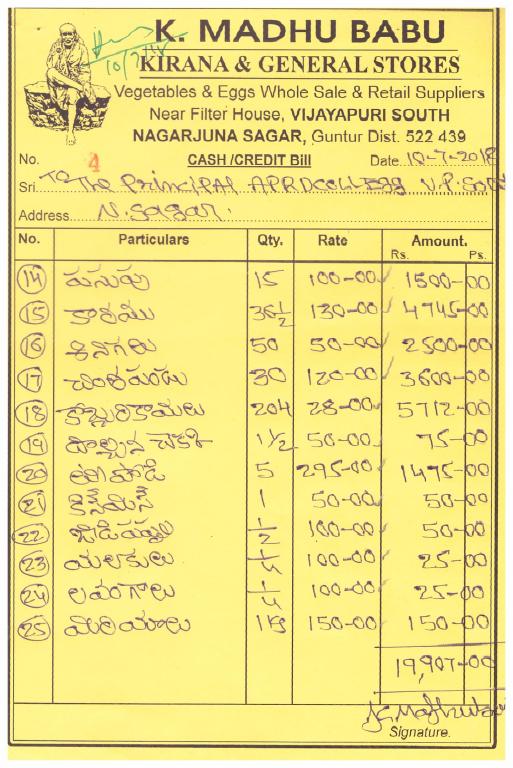 K. MADHU BABU
10/7/18
KIRANA & GENERAL STORES
Vegetables & Eggs Whole Sale & Retail Suppliers
Near Filter House, VIJAYAPURI SOUTH
NAGARJUNA SAGAR, Guntur Dist. 522 439
No. 4 CASH /CREDIT Bill Date 10-7-2018
Sri. To The Principal APRDCollege V.P. South
Address N. Sagar.
No. Particulars Qty. Rate Amount.
Rs. Ps.
14 పసుపు 15 100-00 1500-00
15 కారము 36½ 130-00 4745-00
16 శనిగలు 50 50-00 2500-00
17 చింతపండు 30 120-00 3600-00
18 కొబ్బరికాయలు 204 28-00 5712-00
19 దాల్చిన చెక్క 1½ 50-00 75-00
20 5 295-00 1475-00
21 కిస్‌మిస్ 1 50-00 50-00
22 జీడిపప్పు ½ 100-00 50-00
23 యలకులు ¼ 100-00 25-00
24 లవంగాలు ¼ 100-00 25-00
25 మిరియాలు 1kg 150-00 150-00
19,907-00
K. Madhu Babu
Signature.